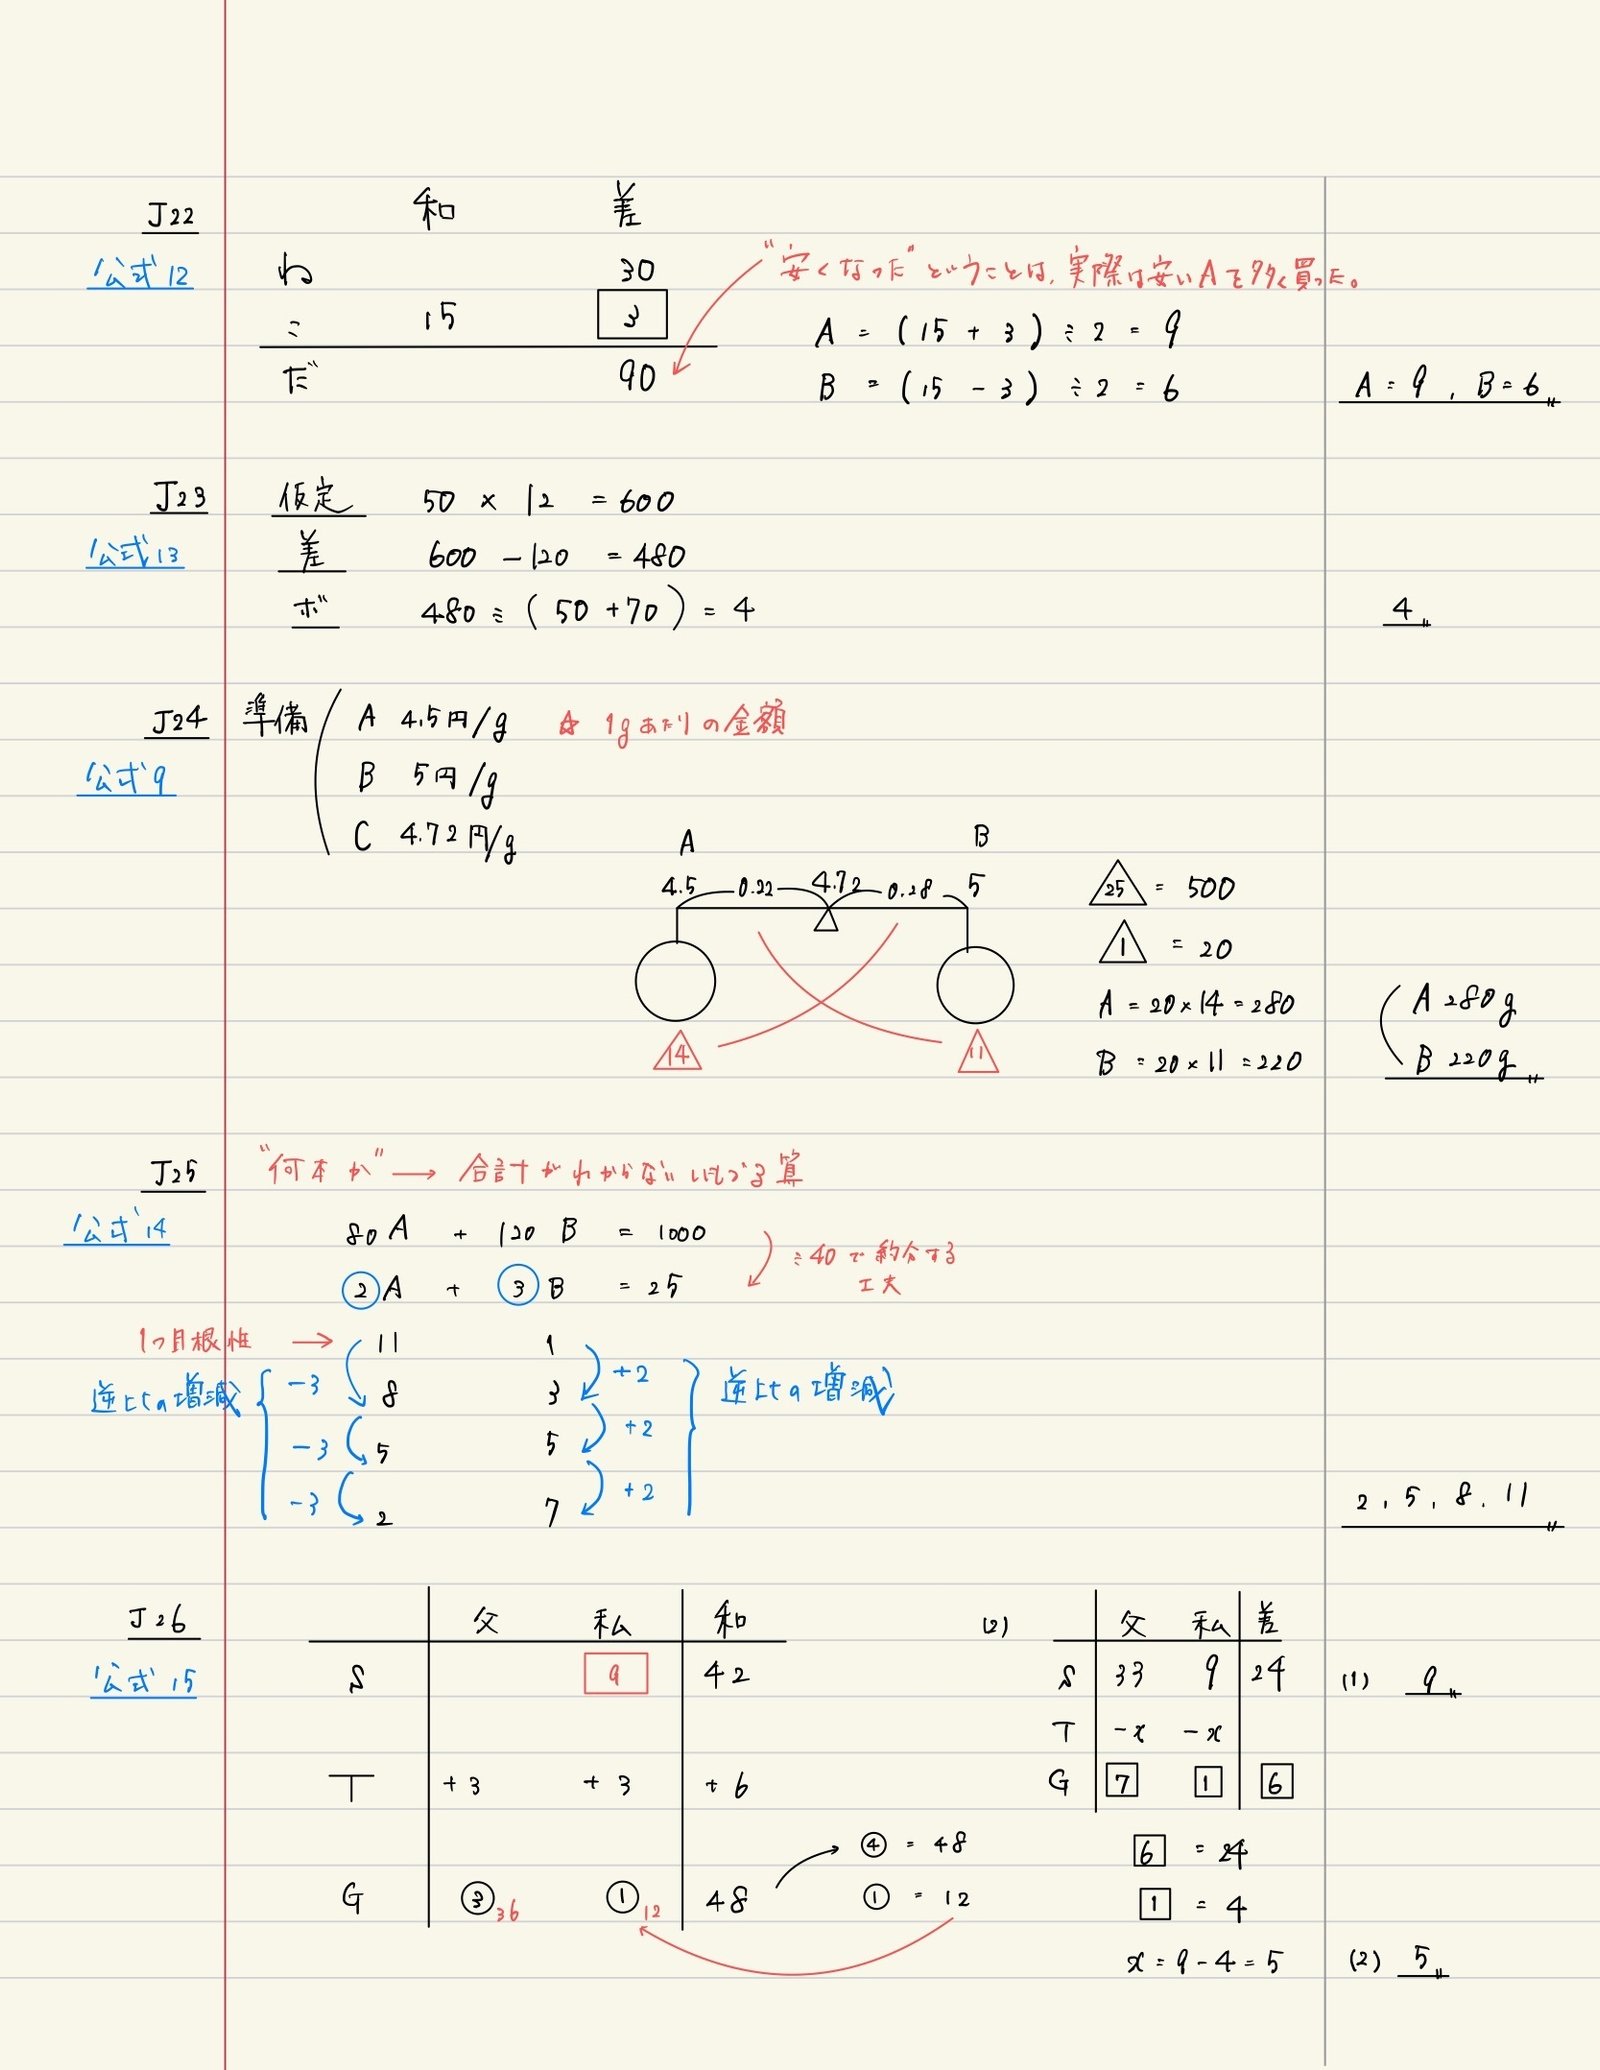 J22
公式12
和 差
ね 30
こ 15 3
だ 90
"安くなった"ということは、実際は安いAを多く買った。
A = (15 + 3) ÷ 2 = 9
B = (15 - 3) ÷ 2 = 6
A = 9, B = 6
J23
公式13
仮定 50 × 12 = 600
差 600 - 120 = 480
ボ 480 ÷ (50 + 70) = 4
4
J24
公式9
準備
A 4.5円/g ☆ 1gあたりの金額
B 5円/g
C 4.72円/g
A B
4.5 0.22 4.72 0.28 5
14 11
25 = 500
1 = 20
A = 20 × 14 = 280
B = 20 × 11 = 220
A 280g
B 220g
J25
公式14
"何本か" → 合計がわからないいもづる算
80A + 120B = 1000
÷40で約分する
工夫
②A + ③B = 25
1つ目根性 → 11 1
逆比の増減 -3 8 3 +2 逆比の増減
-3 5 5 +2
-3 2 7 +2
2, 5, 8, 11
J26
公式15
父 私 和
S 9 42
T +3 +3 +6
G ③36 ①12 48
④ = 48
① = 12
(2) 父 私 差
S 33 9 24
T -x -x
G 7 1 6
6 = 24
1 = 4
x = 9 - 4 = 5
(1) 9
(2) 5